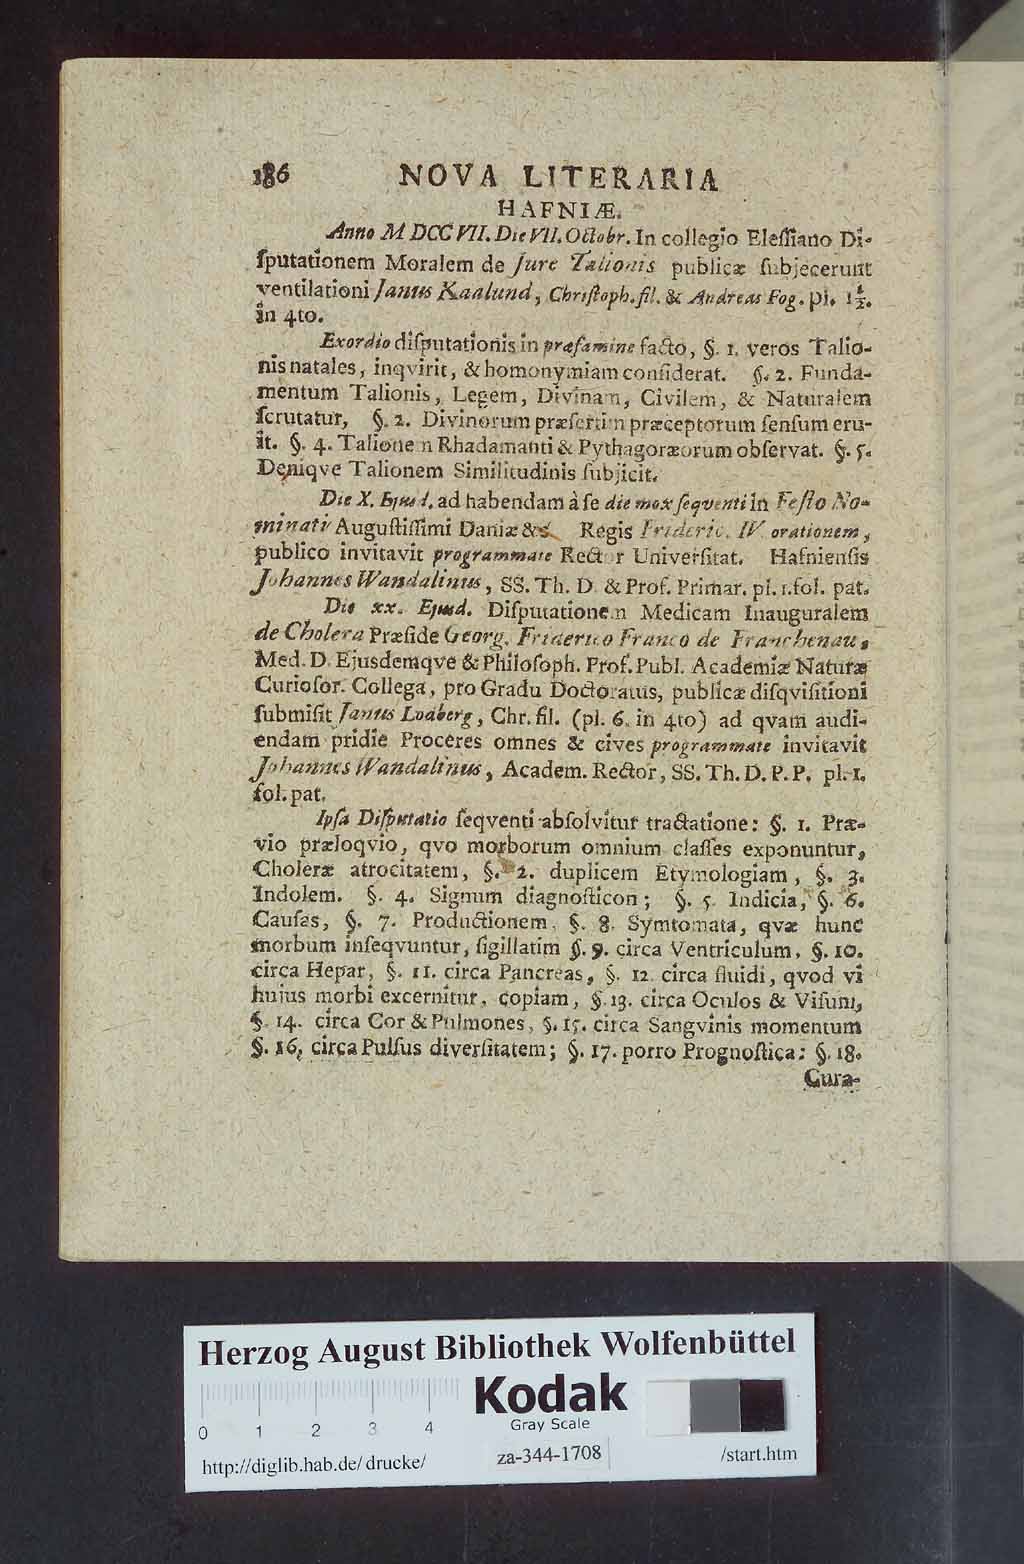 186 NOVA LITERARIA
HAFNIÆ.
Anno MDCCVII. Die VII. Octobr. In collegio Elessiano Di-
ſputationem Moralem de Jure Talionis publicæ ſubjecerunt
ventilationi Janus Kaalund, Chriſtoph. fil. & Andreas Fog. pl. 1½.
in 4to.
Exordio diſputationis in præfamine facto, §. 1. veros Talio-
nis natales, inqvirit, & homonymiam conſiderat. §. 2. Funda-
mentum Talionis, Legem, Divinam, Civilem, & Naturalem
ſcrutatur, §. 2. Divinorum præſertim præceptorum ſenſum eru-
it. §. 4. Talionem Rhadamanti & Pythagoræorum obſervat. §. 5.
Deniqve Talionem Similitudinis ſubjicit.
Die X. Ejusd. ad habendam à ſe die mox ſeqventi in Feſto No-
minati Auguſtiſſimi Daniæ &c. Regis Frideric. IV. orationem,
publico invitavit programmate Rector Univerſitat. Hafnienſis
Johannes Wandalinus, SS. Th. D. & Prof. Primar. pl. 1. fol. pat.
Die xx. Ejusd. Diſputationem Medicam Inauguralem
de Cholera Præſide Georg. Friderico Franco de Franchenau,
Med. D. Ejusdemqve & Philoſoph. Prof. Publ. Academiæ Naturæ
Curioſor. Collega, pro Gradu Doctoratus, publicæ diſqviſitioni
ſubmiſit Janus Lodberg, Chr. fil. (pl. 6. in 4to) ad qvam audi-
endam pridie Proceres omnes & cives programmate invitavit
Johannes Wandalinus, Academ. Rector, SS. Th. D. P. P. pl. 1.
fol. pat.
Ipſa Diſputatio ſeqventi abſolvitur tractatione: §. 1. Præ-
vio præloqvio, qvo morborum omnium claſſes exponuntur,
Choleræ atrocitatem, §. 2. duplicem Etymologiam, §. 3.
Indolem. §. 4. Signum diagnoſticon; §. 5. Indicia, §. 6.
Cauſas, §. 7. Productionem, §. 8. Symtomata, qvæ hunc
morbum inſeqvuntur, ſigillatim §. 9. circa Ventriculum, §. 10.
circa Hepar, §. 11. circa Pancreas, §. 12. circa fluidi, qvod vi
hujus morbi excernitur, copiam, §. 13. circa Oculos & Viſum,
§. 14. circa Cor & Pulmones, §. 15. circa Sangvinis momentum
§. 16, circa Pulſus diverſitatem; §. 17. porro Prognoſtica: §. 18.
Cura-
Herzog August Bibliothek Wolfenbüttel
Kodak
Gray Scale
0 1 2 3 4
http://diglib.hab.de/drucke/ za-344-1708 /start.htm